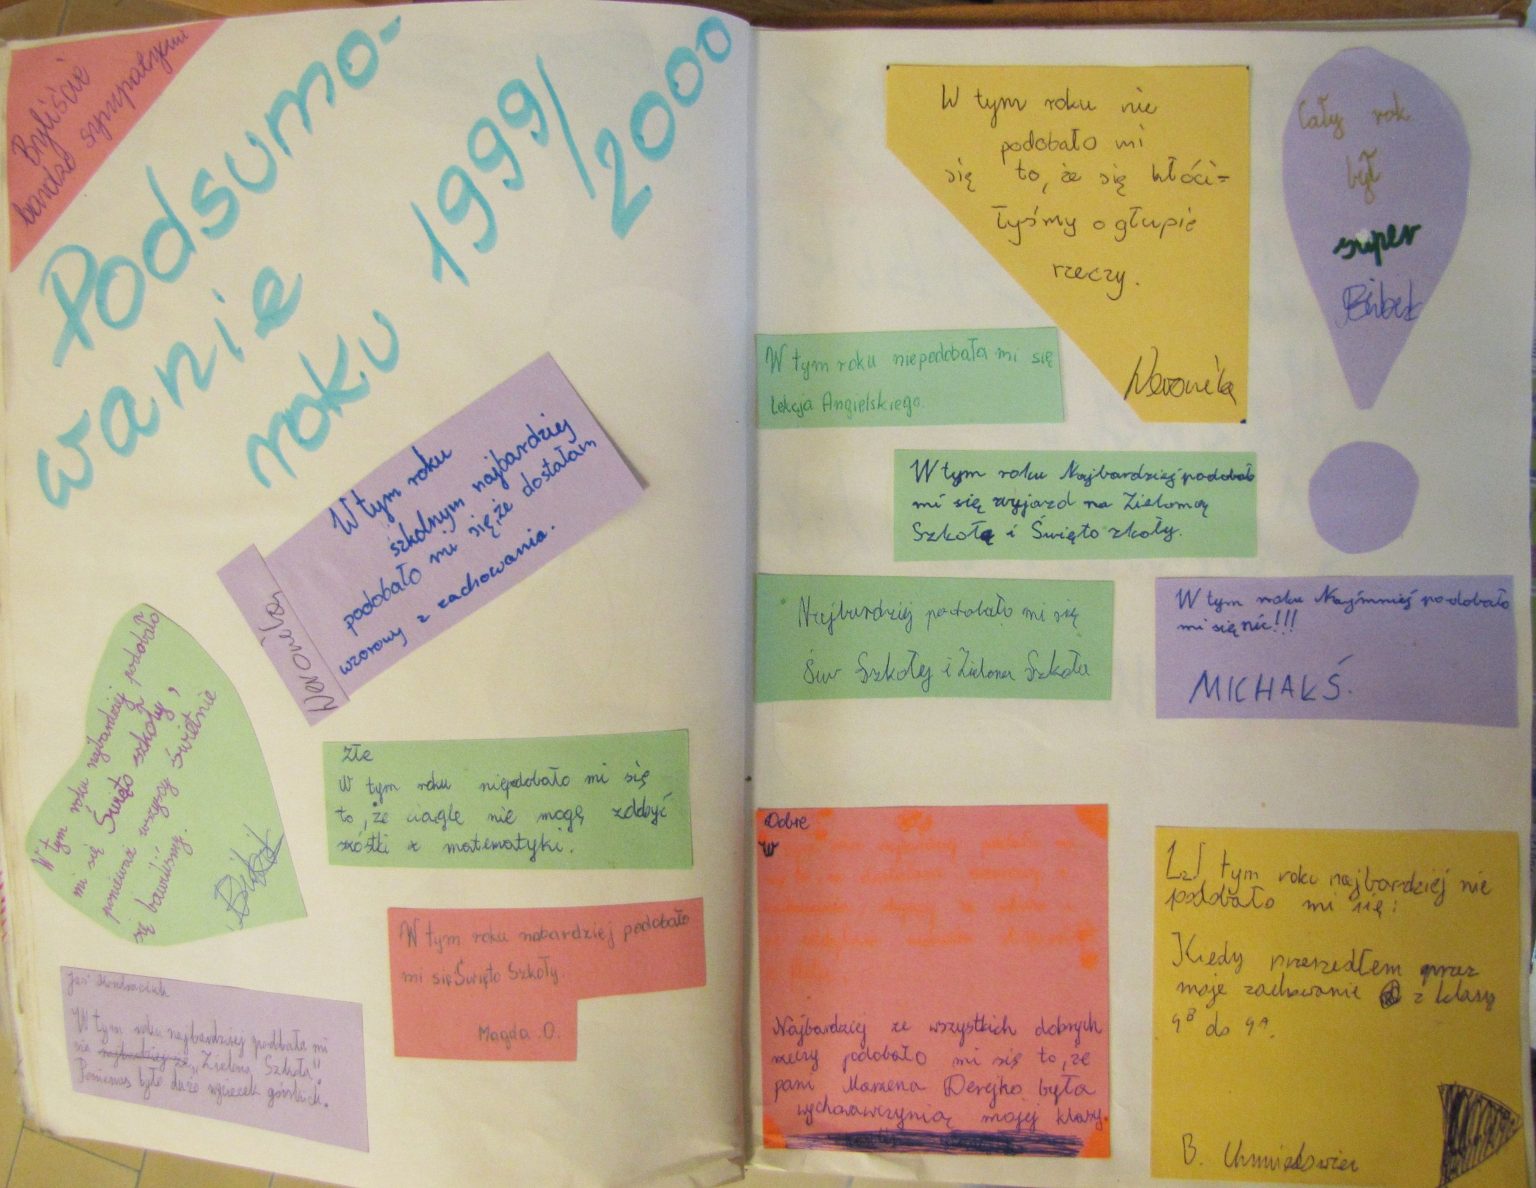 Byliście
bardzo sympatyczni
Podsumo-
wanie
roku 1999/2000
W tym roku
szkolnym najbardziej
podobało mi się, że dostałam
wzorowy z zachowania.
Weronika
W tym roku najbardziej podobało
mi się Święto szkoły,
ponieważ wszyscy świetnie
się bawiliśmy.
złe
W tym roku niepodobało mi się
to, że ciągle nie mogę zdobyć
szóstki z matematyki.
W tym roku nabardziej podobało
mi się Święto Szkoły.
Magda O.
Jaś
W tym roku najbardziej podobała mi
sie najbardziej ze „Zielona Szkoła".
Ponieważ było dużo wycieczek górskich.
W tym roku nie
podobało mi
się to, że się kłóci=
łyśmy o głupie
rzeczy.
Weronika
Cały rok
był
super
Bibek
W tym roku niepodobała mi się
Lekcja Angielskiego.
W tym roku Najbardziej podobało
mi się wyjazd na Zieloną
Szkołę i Święto szkoły.
Najburdziej podobało mi się
Św Szkołej i Zielona Szkoła
W tym roku Najmniej podobało
mi się nic!!!
MICHAŁ Ś.
Dobre
W
Najbardziej ze wszystkich dobrych
rzeczy podobało mi się to, że
pani Marzena Derejko była
wychowawczynią mojej klasy.
W tym roku najbardziej nie
podobało mi się:
Kiedy przeszedłem przez
moje zachowanie z klasy
4B do 4A.
B.